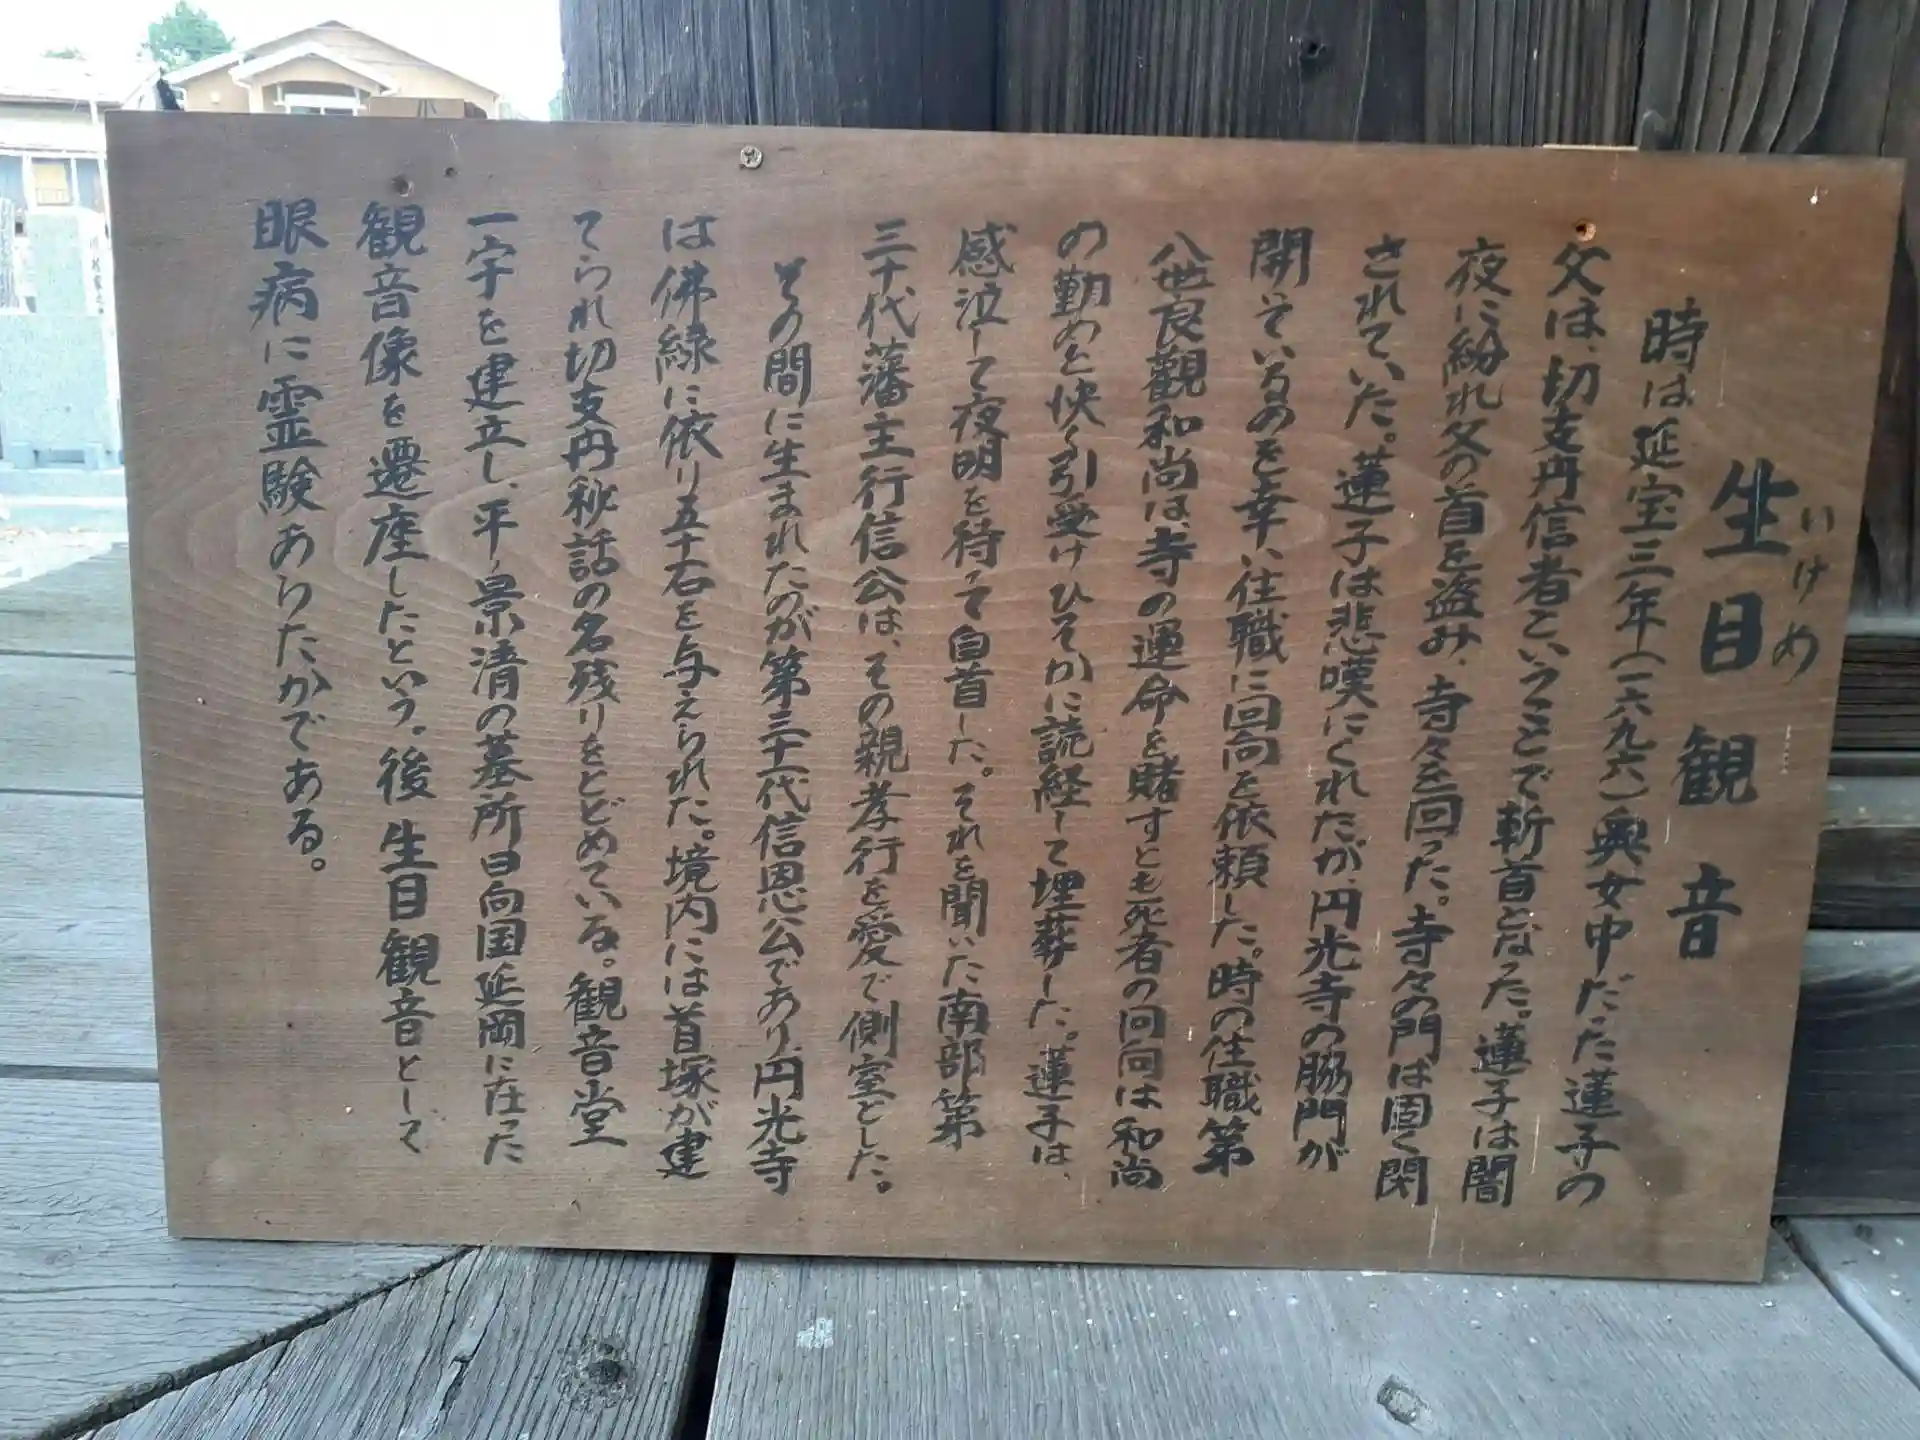 生目観音
いけめ
時は延宝三年(一六九六)奥女中だった蓮子の
父は、切支丹信者ということで斬首となった。蓮子は闇
夜に紛れ父の首を盗み、寺々を回った。寺々の門は固く閉
されていた。蓮子は悲嘆にくれたが、円光寺の脇門が
開いているのを幸いに住職に回向を依頼した。時の住職第
八世良観和尚は、寺の運命を賭すとも死者の回向は和尚
の勤めと快く引受けひそかに読経して埋葬した。蓮子は、
感泣して夜明を待って自首した。それを聞いた南部第
三十代藩主行信公は、その親孝行を愛で側室とした。
その間に生まれたのが第三十一代信恩公であり、円光寺
は佛縁に依り五十石を与えられた。境内には首塚が建
てられ切支丹秘話の名残りをとどめている。観音堂
一宇を建立し、平ノ景清の墓所日向国延岡に在った
観音像を遷座したという。後生目観音として
眼病に霊験あらたかである。